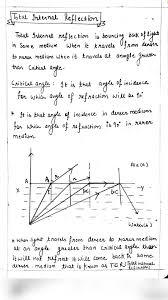 Total Internal Reflection
Total Internal reflection is bouncing back of light
in same medium when it travels from denser
to rarer medium when it travels at an angle greater
than critical angle.
Critical angle : It is that angle of incidence
for which angle of refraction will be 90°
* It is that angle of incidence in denser medium
for which angle of refraction is 90° in rarer
medium.
Air (R)
A
A
Water (D)
* When light travels from denser to rarer medium
at an angle greater than critical angle then
it will not refract it will come back to same
denser medium that is known as TIR (Total internal